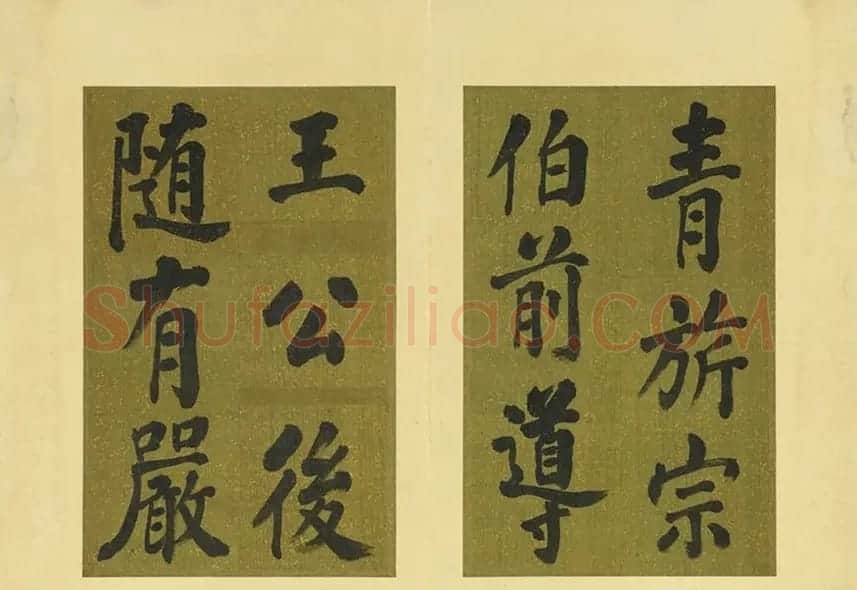 青旂宗
伯前導
王公後
随有嚴
Shufaziliao.COM